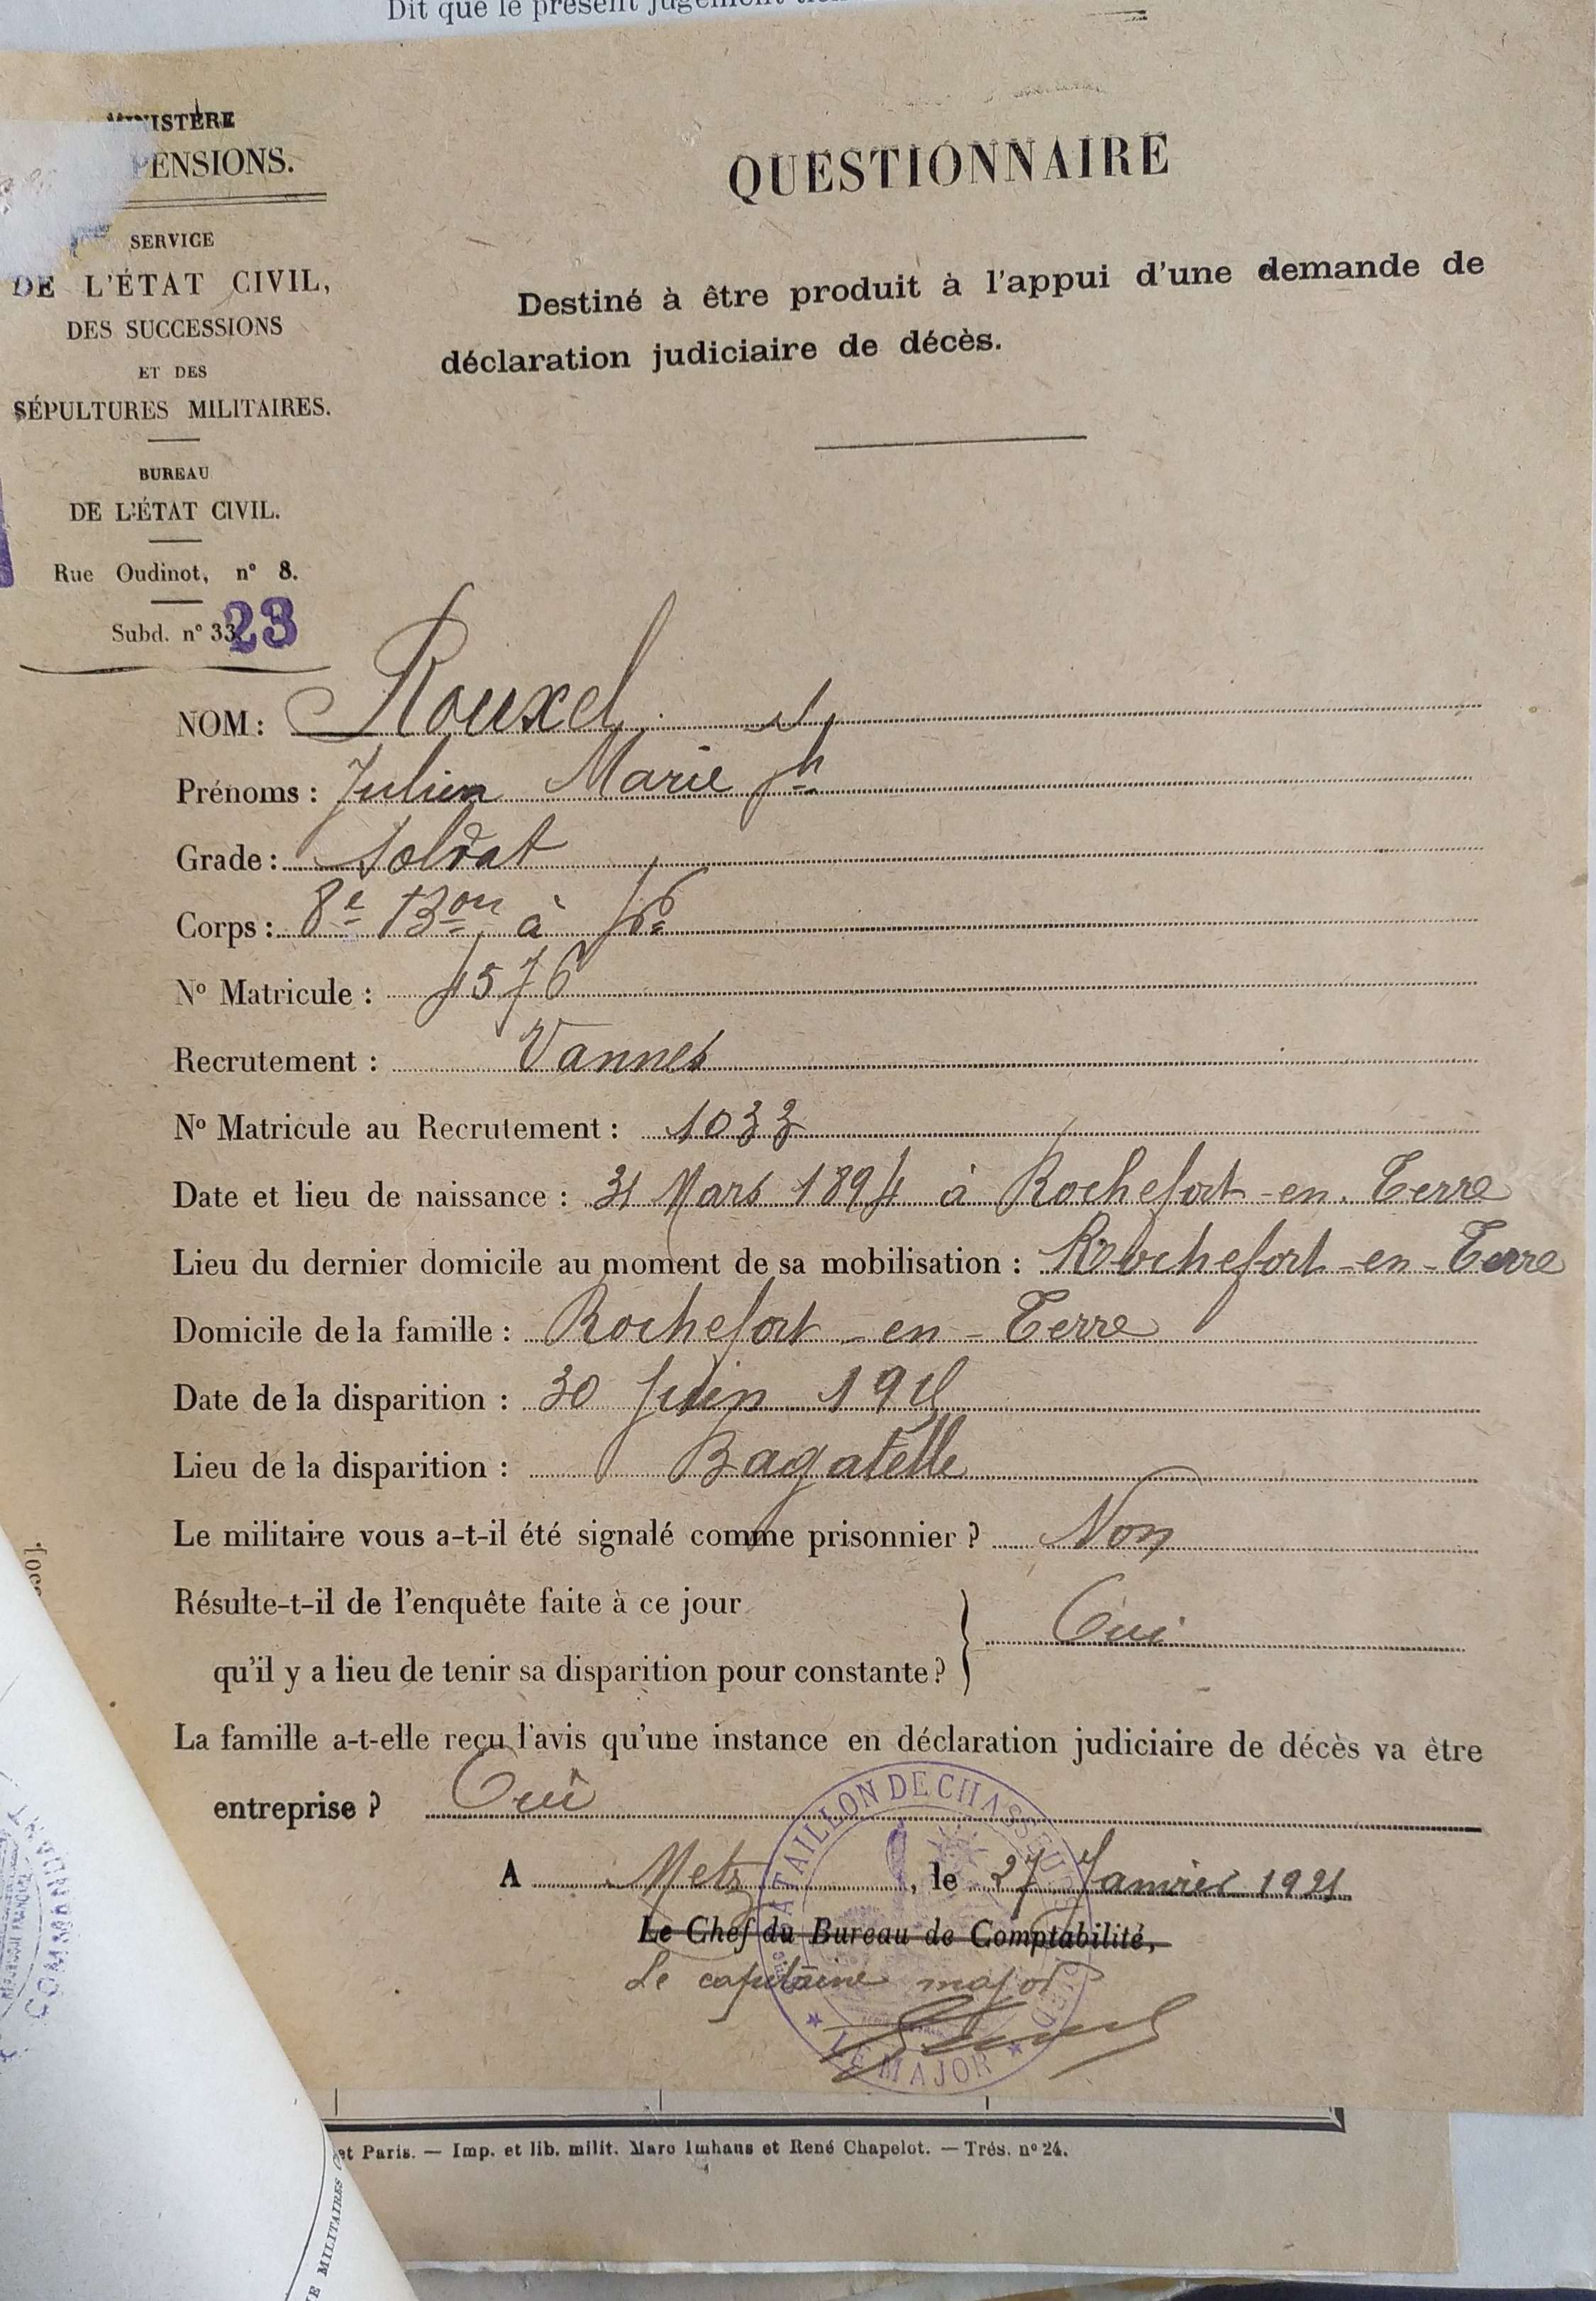 Dit que le présent jugement
MINISTÈRE
PENSIONS.
SERVICE
DE L'ÉTAT CIVIL,
DES SUCCESSIONS
ET DES
SÉPULTURES MILITAIRES.
BUREAU
DE L'ÉTAT CIVIL.
Rue Oudinot, n° 8.
Subd. n° 33
23
QUESTIONNAIRE
Destiné à être produit à l'appui d'une demande de
déclaration judiciaire de décès.
NOM : Rouxel
Prénoms : Julien Marie Jh
Grade : Soldat
Corps : 8e Bon à Pd
N° Matricule : 1576
Recrutement : Vannes
N° Matricule au Recrutement : 1033
Date et lieu de naissance : 31 Mars 1894 à Rochefort-en-Terre
Lieu du dernier domicile au moment de sa mobilisation : Rochefort-en-Terre
Domicile de la famille : Rochefort-en-Terre
Date de la disparition : 30 Juin 1915
Lieu de la disparition : Bagatelle
Le militaire vous a-t-il été signalé comme prisonnier ? Non
Résulte-t-il de l'enquête faite à ce jour
qu'il y a lieu de tenir sa disparition pour constante ? } Oui
La famille a-t-elle reçu l'avis qu'une instance en déclaration judiciaire de décès va être
entreprise ? Oui
A Metz, le 27 Janvier 1921
Le Chef du Bureau de Comptabilité,
Le capitaine major
BATAILLON DE CHASSEURS
LE MAJOR
et Paris. — Imp. et lib. milit. Marc Imhaus et René Chapelot. — Trés. n° 24.
RÉPUBLIQUE FRANÇAISE
COMMAND
MILITAIRES